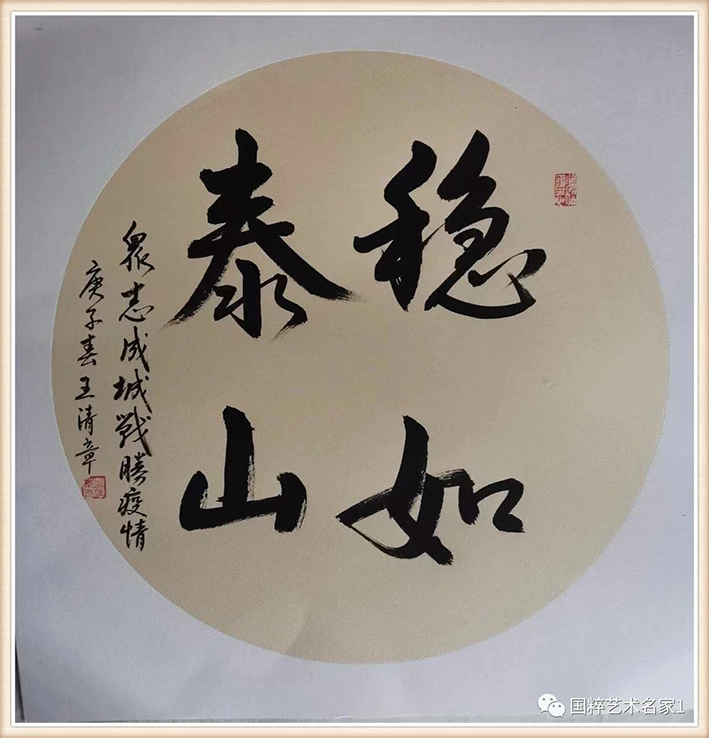 稳如
泰山
眾志成城戰勝疫情
庚子春王清章
国粹艺术名家1